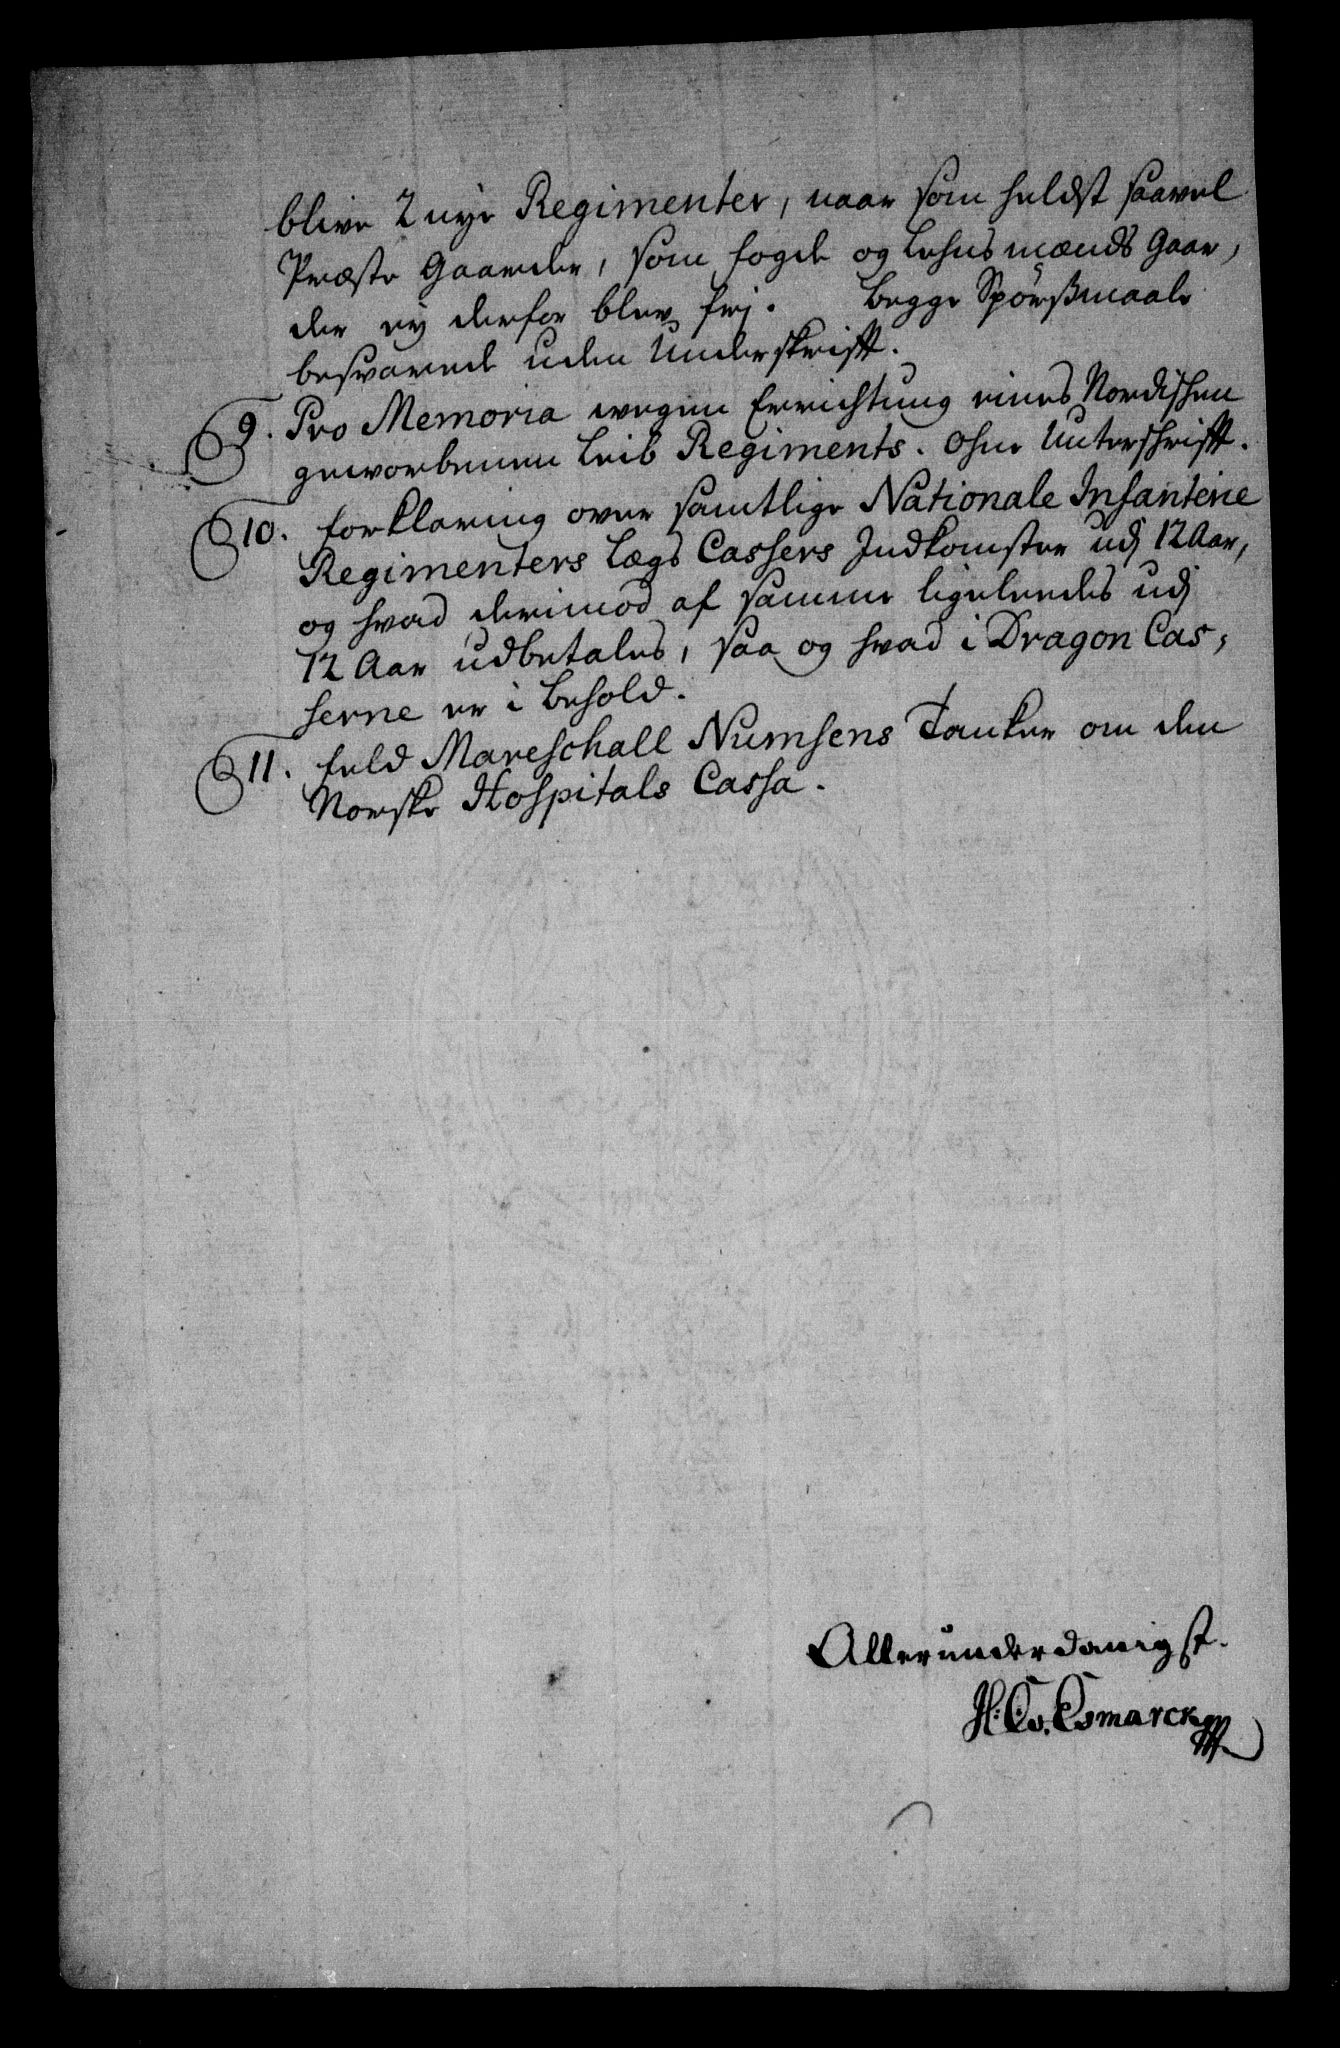 blive 2 nye Regimenter, naar som heldst saavel
Præste Gaarder, som fogde og Lehnsmænds Gaar,
der ej derfor blev frj. Begge Spörßmaale
besvarede uden Underskrifft.
9. Pro Memoria wegen Errichtung eines Nordischen
geworbenen Leib Regiments. Ohne Unterschrifft.
10. forklaring over samtlige Nationale Infanterie
Regimenters Lægs Cassers Indkomster udj 12 Aar,
og hvad derimod af samme ligeledes udj
12 Aar udbetales, saa og hvad i Dragon Cas,
serne er i behold.
11. feld Mareschall Numsens Tanker om den
Norske Hospitals Cassa.
Allerunderdanigst.
H: Cs. Esmarck